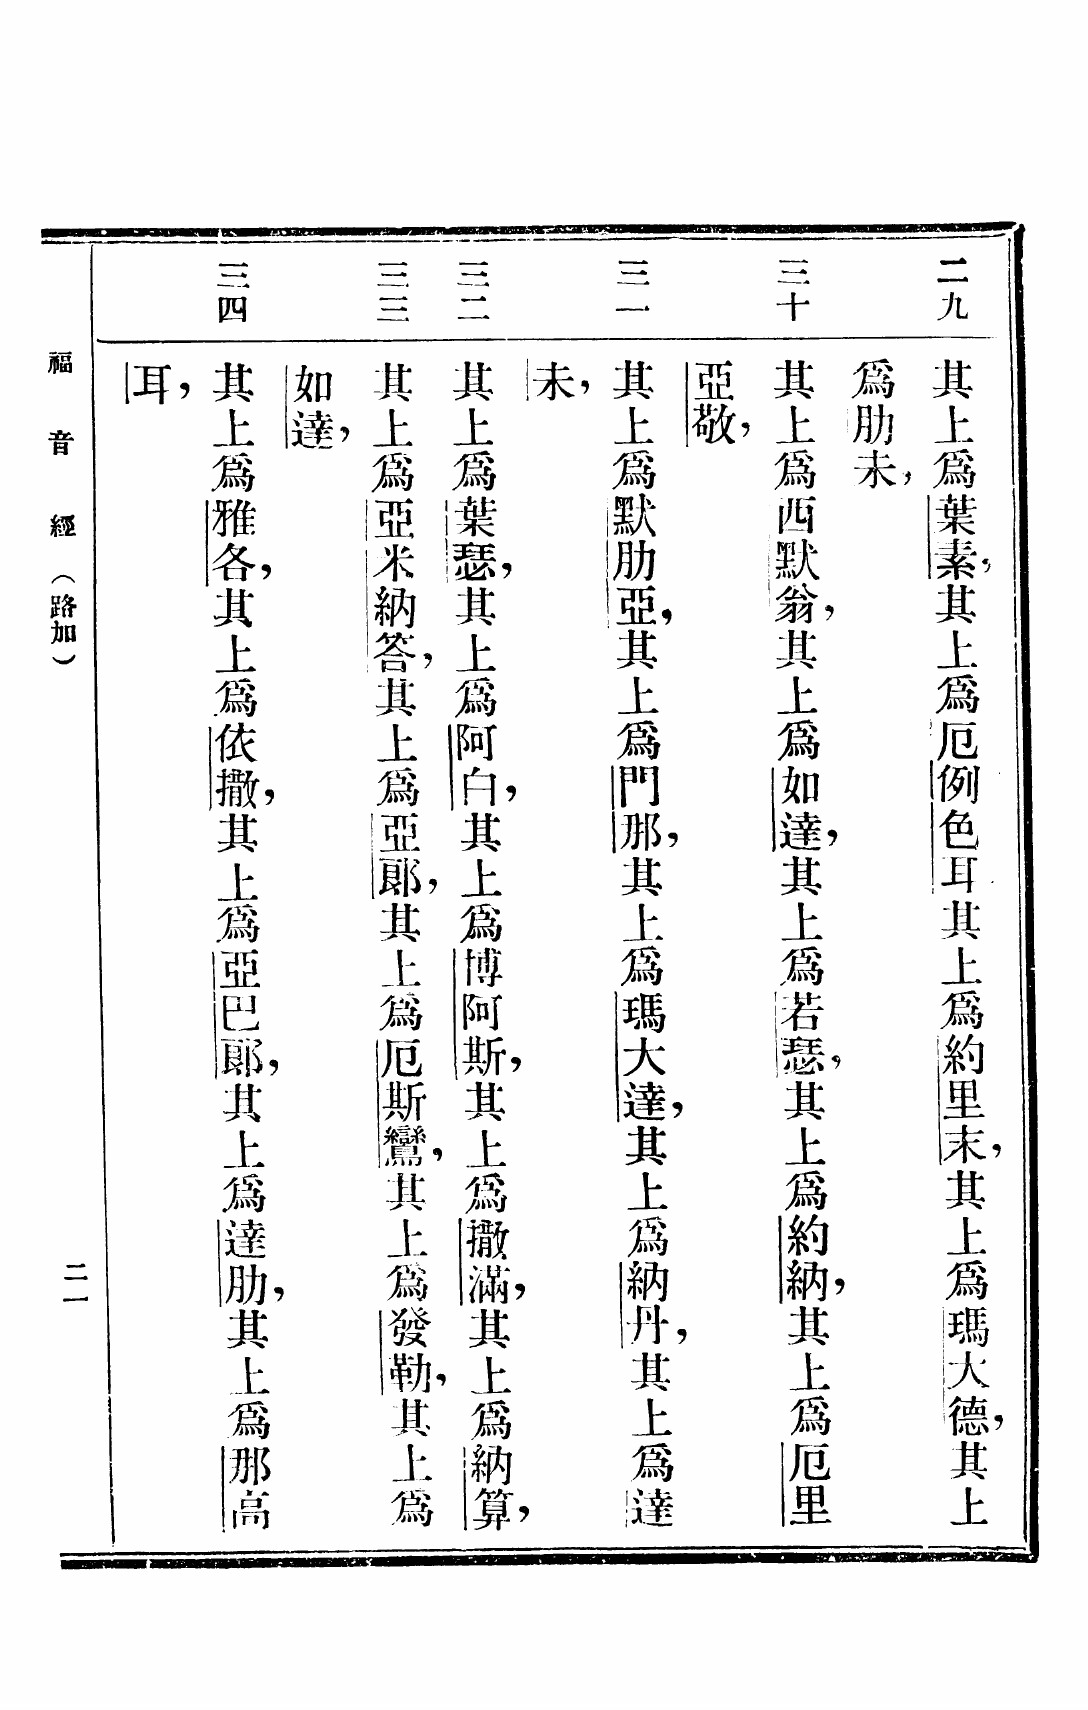 二九
其上爲葉素，其上爲厄例色耳其上爲約里末，其上爲瑪大德，其上
爲肋未，
三十
其上爲西默翁，其上爲如達，其上爲若瑟，其上爲約納，其上爲厄里
亞敬，
三一
其上爲默肋亞，其上爲門那，其上爲瑪大達，其上爲納丹，其上爲達
未，
三二
其上爲葉瑟，其上爲阿白，其上爲博阿斯，其上爲撒滿，其上爲納算，
三三
其上爲亞米納答，其上爲亞郞，其上爲厄斯鸞，其上爲發勒，其上爲
如達，
三四
其上爲雅各，其上爲依撒，其上爲亞巴郞，其上爲達肋，其上爲那高
耳，
福音經（路加）
二一